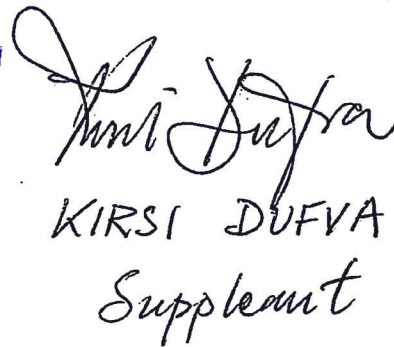 Kirsi Dufva
KIRSI DUFVA
Suppleant